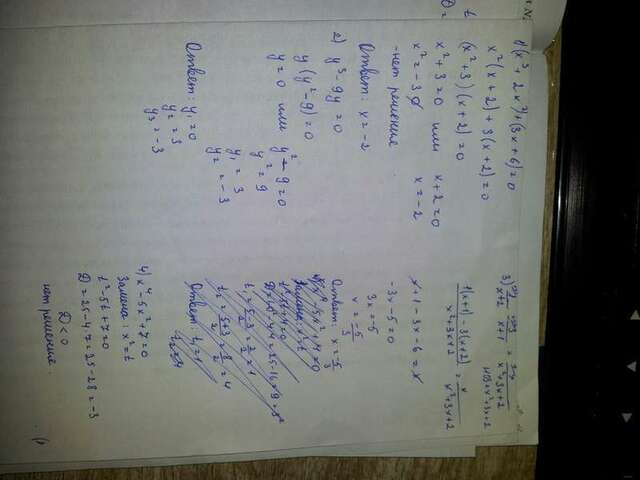 1) (x³ + 2x²) + (3x + 6) = 0
x²(x + 2) + 3(x + 2) = 0
(x² + 3)(x + 2) = 0
x² + 3 = 0 или x + 2 = 0
x² = -3 x = -2
-нет решения
Ответ: x = -2
2) y³ - 9y = 0
y(y² - 9) = 0
y = 0 или y² - 9 = 0
y² = 9
y₁ = 3
y₂ = -3
Ответ: y₁ = 0
y₂ = 3
y₃ = -3
3)
x+2 x+1 = x²+3x+2
НОЗ = x²+3x+2
1(x+1) - 3(x+2) / x²+3x+2 = x / x²+3x+2
x + 1 - 3x - 6 = x
-3x - 5 = 0
3x = -5
x = -5/3
Ответ: x = -5/3
Замена: x² = t
t₁ = 5-3/2 = 2/2 = 1
t₂ = 5+3/2 = 8/2 = 4
Ответ: t₁ = 1
t₂ = 4
4) x⁴ - 5x² + 7 = 0
Замена: x² = t
t² - 5t + 7 = 0
D = 25 - 4·7 = 25 - 28 = -3
D < 0
нет решения.